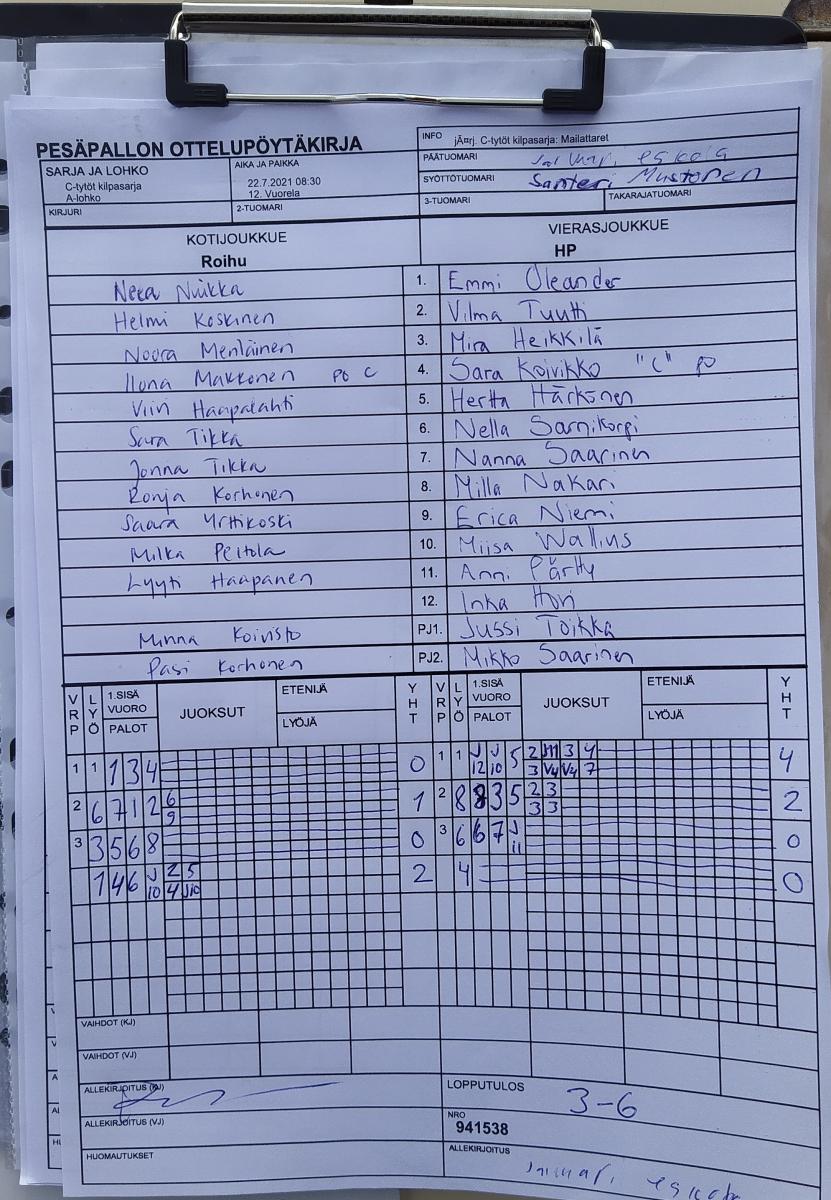 PESÄPALLON OTTELUPÖYTÄKIRJA
INFO jÃ¤rj. C-tytöt kilpasarja: Mailattaret
PÄÄTUOMARI eskola
SYÖTTÖTUOMARI Santeri Mustonen
SARJA JA LOHKO
C-tytöt kilpasarja
A-lohko
AIKA JA PAIKKA
22.7.2021 08:30
12. Vuorela
KIRJURI
2-TUOMARI
3-TUOMARI
TAKARAJATUOMARI
KOTIJOUKKUE
Roihu
VIERASJOUKKUE
HP
Neea Niikka 1. Emmi Oleander
Helmi Koskinen 2. Vilma Tuutti
Noora Menläinen 3. Mira Heikkilä
Ilona Makkonen po C 4. Sara Koivikko "C" po
Viivi Haapalahti 5. Hertta Härkönen
Sara Tikka 6. Nella Sarnikorpi
Jonna Tikka 7. Nanna Saarinen
Ronja Korhonen 8. Milla Nakari
Saara Yrttikoski 9. Erica Niemi
Milka Peltola 10. Miisa Wallius
Lyyti Haapanen 11. Anni Pärtty
12. Inka Hovi
Minna Koivisto PJ1. Jussi Toikka
Pasi Korhonen PJ2. Mikko Saarinen
VRP LYÖ 1.SISÄ VUORO PALOT JUOKSUT ETENIJÄ LYÖJÄ YHT VRP LYÖ 1.SISÄ VUORO PALOT JUOKSUT ETENIJÄ LYÖJÄ YHT
1 1 1 3 4 0 1 1 J 12 J 10 5 2 3 4 3 V4 V4 7 4
2 6 7 1 2 6 9 1 2 8 8 3 5 2 3 3 3 2
3 3 5 6 8 0 3 6 6 7 J 11 0
1 4 6 J 10 2 5 4 J10 2 4 0
VAIHDOT (KJ)
VAIHDOT (VJ)
ALLEKIRJOITUS (KJ)
ALLEKIRJOITUS (VJ)
HUOMAUTUKSET
LOPPUTULOS 3-6
NRO
941538
ALLEKIRJOITUS